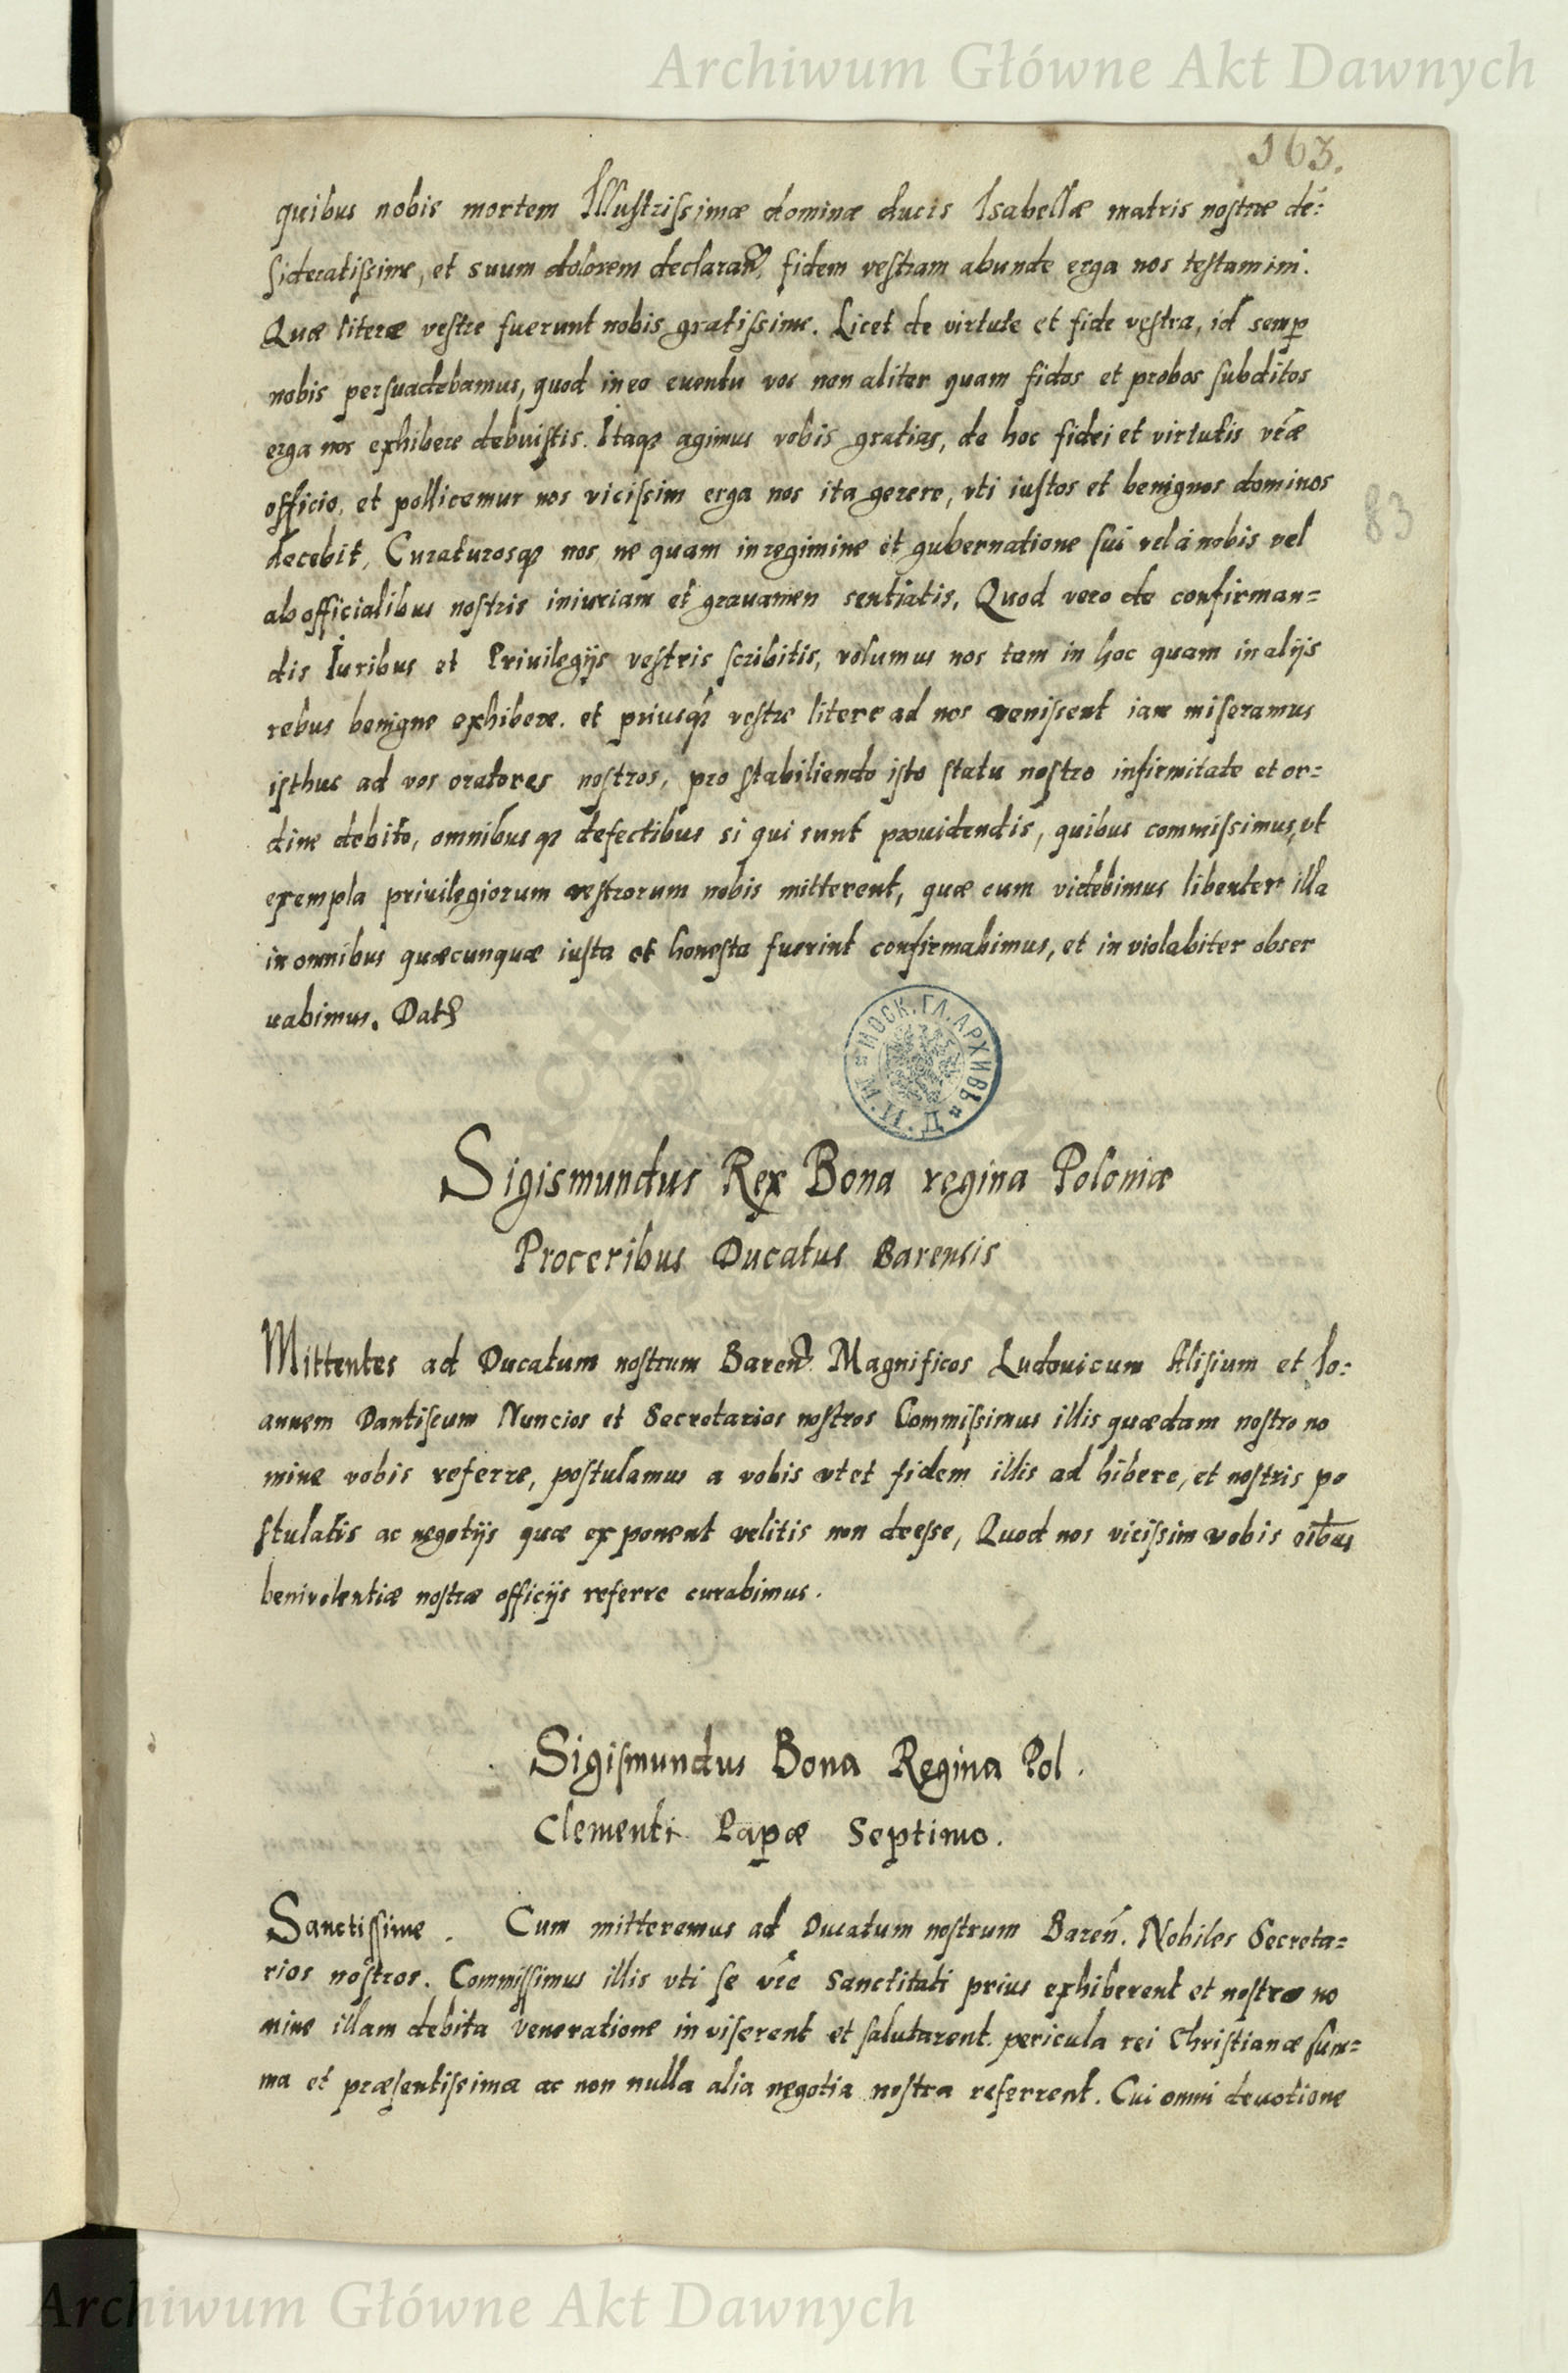 Archiwum Główne Akt Dawnych
163.
quibus nobis mortem Illustrissimæ dominæ ducis Isabellæ matris nostræ de:
sideratissime, et suum dolorem declaran̄, fidem vestram abunde erga nos testamini.
Quæ literæ vestre fuerunt nobis gratissime. Licet de virtute et fide vestra, id semp
nobis persuadebamus, quod in eo euentu vos non aliter quam fidos et probos subditos
erga nos exhibere debuistis. Itaqꝫ agimus vobis gratias, de hoc fidei et virtutis vr̃æ
officio, et pollicemur nos vicissim erga nos ita gerere, vti iustos et benignos dominos
docebit, Curaturosqꝫ nos, ne quam in regimine et gubernatione sui vel à nobis vel
ab officialibus nostris iniuriam et grauamen sentiatis, Quod vero de confirman=
dis Iuribus et Priuilegijs vestris scribitis, volumus nos tam in hoc quam in alijs
rebus benigne exhibere. et priusqꝫ vestre litere ad nos venissent iam miseramus
isthuc ad vos oratores nostros, pro stabiliendo isto statu nostro infirmitate et or=
dine debito, omnibusqꝫ defectibus si qui sunt prouidendis, quibus commissimus, vt
exempla priuilegiorum vestrorum nobis mitterent, quæ cum videbimus libenter illa
in omnibus quæcunquæ iusta et honesta fuerint confirmabimus, et in violabiter obser
uabimus. Dat
83
МОСК. ГЛ. АРХИВЪ М. И. Д.
Sigismundus Rex Bona regina Poloniæ
Proceribus Ducatus Barensis
Mittentes ad Ducatum nostrum Baren̄. Magnificos Ludouicum Alisium et Io:
annem Dantiscum Nuncios et Secretarios nostros Commissimus illis quædam nostro no
mine vobis referre, postulamus a vobis vt et fidem illis ad hibere, et nostris po
stulatis ac negotijs quæ ex ponent velitis non deesse, Quod nos vicissim vobis oībus
benivolentiæ nostræ officijs referre curabimus.
Sigismundus Bona Regina Pol.
Clementi Papæ Septimo.
Sanctissime. Cum mitteremus ad Ducatum nostrum Baren̄. Nobiles Secreta=
rios nostros. Commissimus illis vti se vr̃e Sanctitati prius exhiberent et nostro no
mine illam debita veneratione in viserent et salutarent. pericula rei Christianæ sum=
ma et præsentissima ac non nulla alia negotia nostra referrent. Cui omni deuotione
Archiwum Główne Akt Dawnych